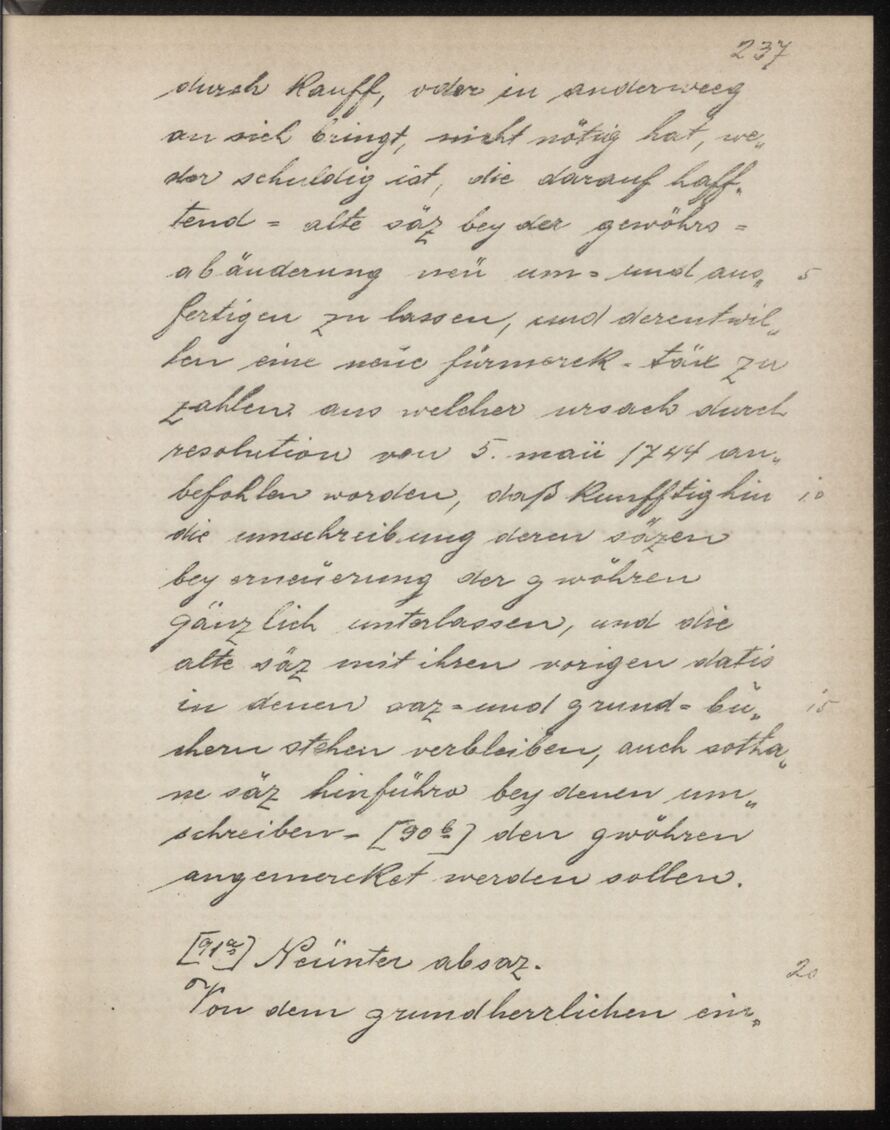 237
durch Kauff, oder in anderweeg
an sich bringt, nicht nötig hat, we„
der schuldig ist, die darauf haff„
tend = alte säz bey der gewöhrs =
abänderung neü um = und aus„ 5
fertigen zu lassen, und derentwil„
len eine neüe fürmerck - täx zu
zahlen aus welcher ursach durch
resolution von 5. maii 1744 an„
befohlen worden, daß Kunfftighin 10
die umschreibung deren säzen
bey erneüerung der gwöhren
gänzlich unterlassen, und die
alte säz mit ihren vorigen datis
in denen saz = und grund = bü„ 15
chern stehen verbleiben, auch sotha„
ne säz hinführo bey denen um„
schreiben - [90b] den gwöhren
angemercket werden sollen.
[91a] Neünter absaz.
20
Von dem grundherrlichen ein„